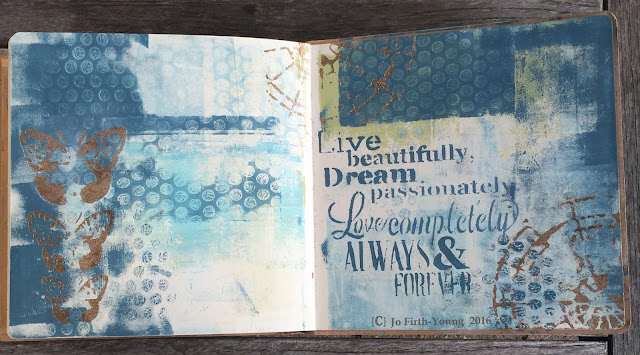 Live
beautifully,
Dream
passionately
Love completely
ALWAYS &
FOREVER
{C} Jo Firth-Young 2016